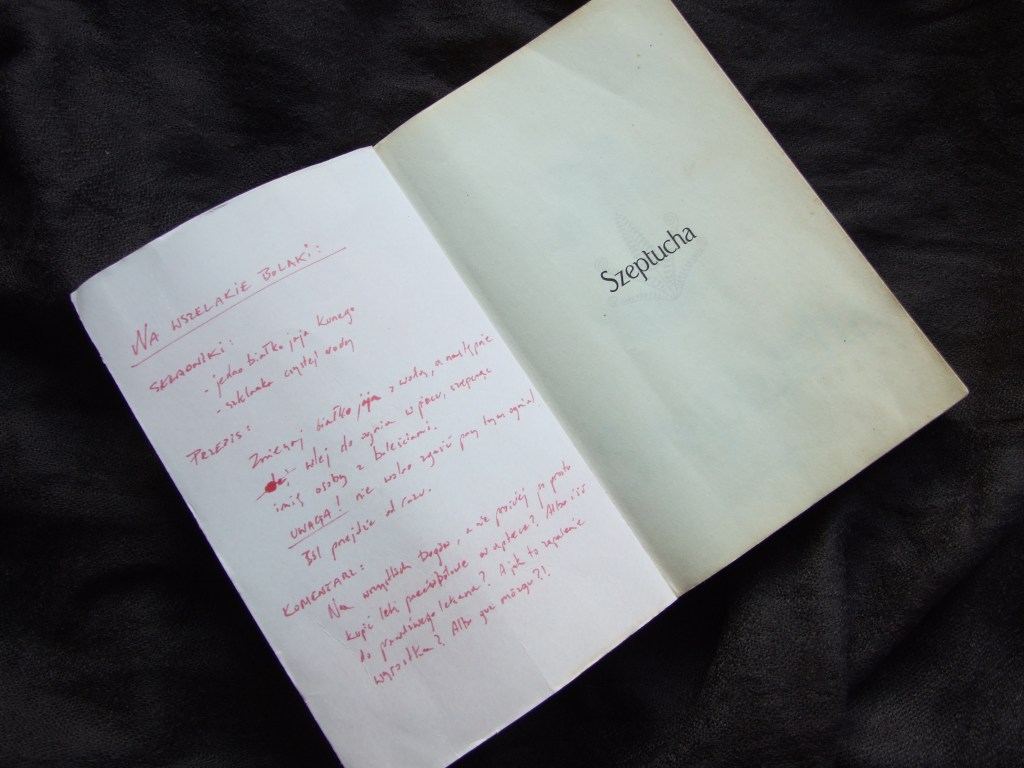 NA WSZELAKIE BOLAKI:
SKŁADNIKI:
- jedno białko jaja kurzego
- szklanka czystej wody
PRZEPIS:
Zmieszaj białko jaja z wodą, a następnie
wlej do ognia w piecu, szepcząc
imię osoby z boleściami.
UWAGA! nie wolno zgasić przy tym ognia!
Ból przejdzie od razu.
KOMENTARZ:
Na wszystkich bogów, a nie prościej po prostu
kupić leki przeciwbólowe w aptece? Albo iść
do prawdziwego lekarza? A jak to zapalenie
wyrostka? Albo guz mózgu?!
Szeptucha